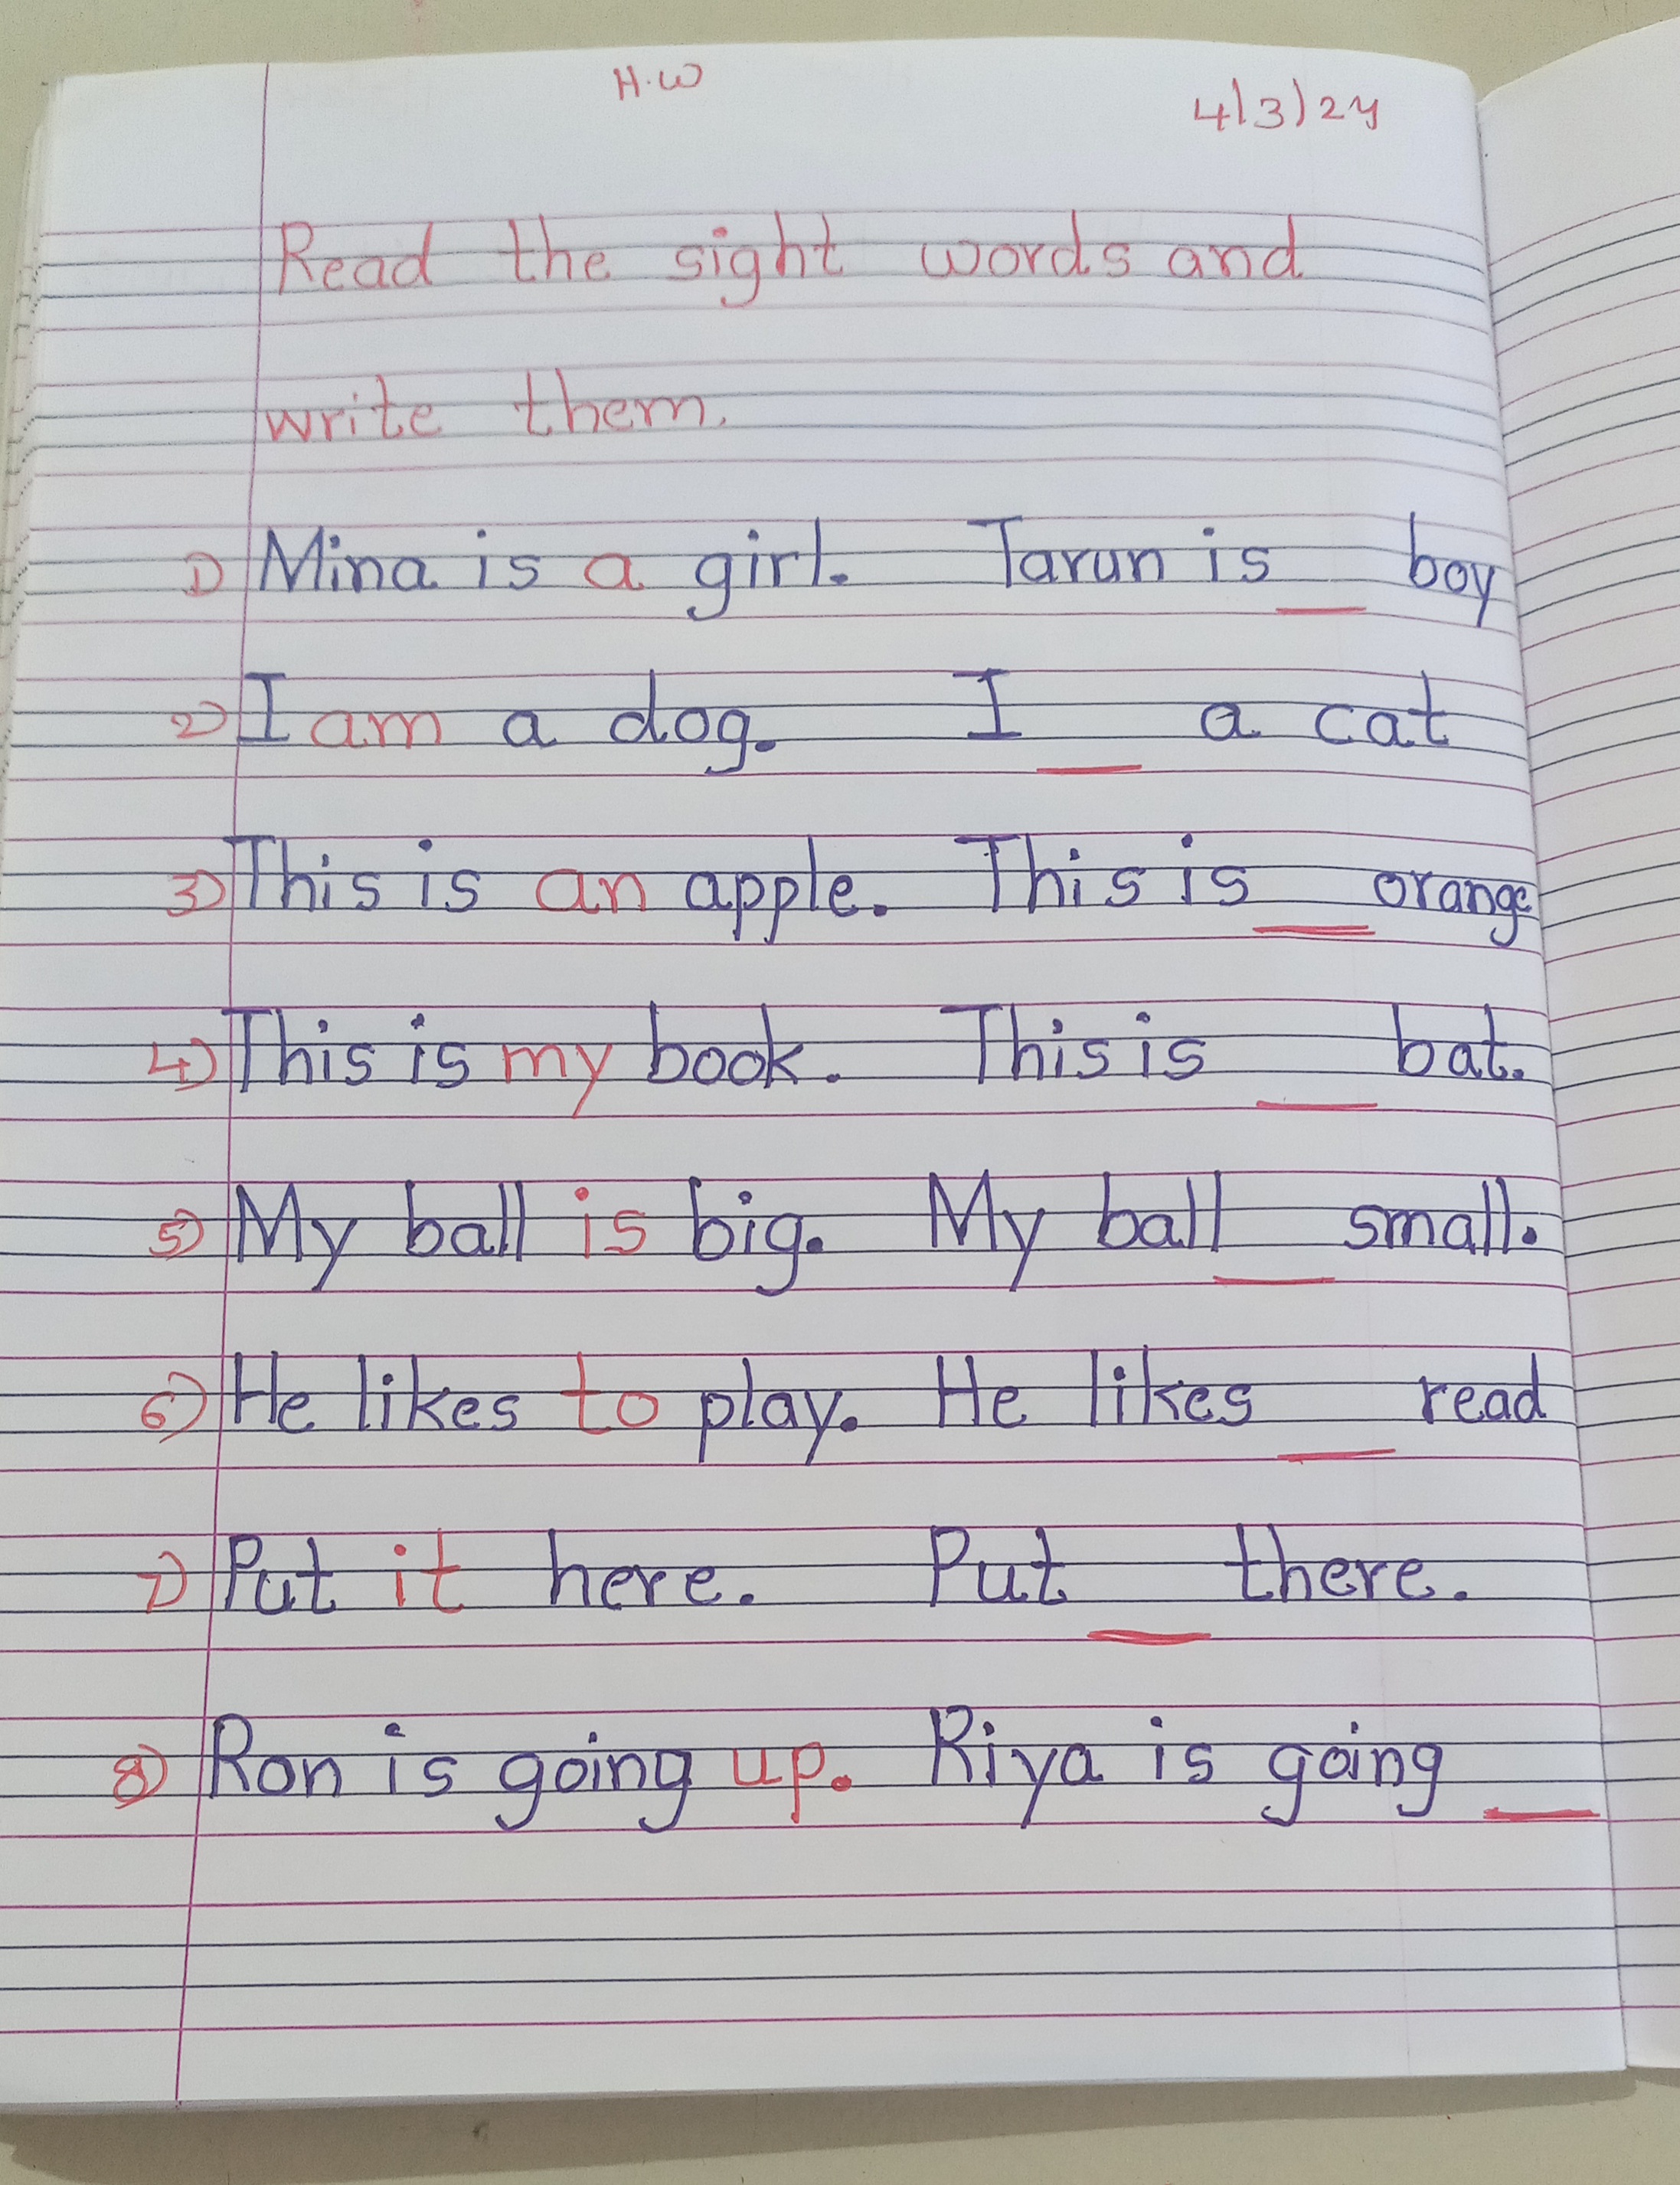 H.W
4/3/24
Read the sight words and
write them.
1) Mina is a girl. Tarun is __ boy
2) I am a dog. I __ a cat
3) This is an apple. This is __ orange
4) This is my book. This is __ bat.
5) My ball is big. My ball __ small.
6) He likes to play. He likes __ read
7) Put it here. Put __ there.
8) Ron is going up. Riya is going __